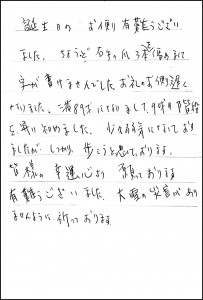 誕生日の お便り有難うござい
ました、ちょうど右手の爪を
字が書けませんでしたお礼のお便り遅く
なりました。満89才になりまして、
を思い初めました。なっており
ましたが、しっかり歩こうと思っております。
皆様の幸運心より 願っております
有難うございました。大雪の災害があり
ませんように祈っております